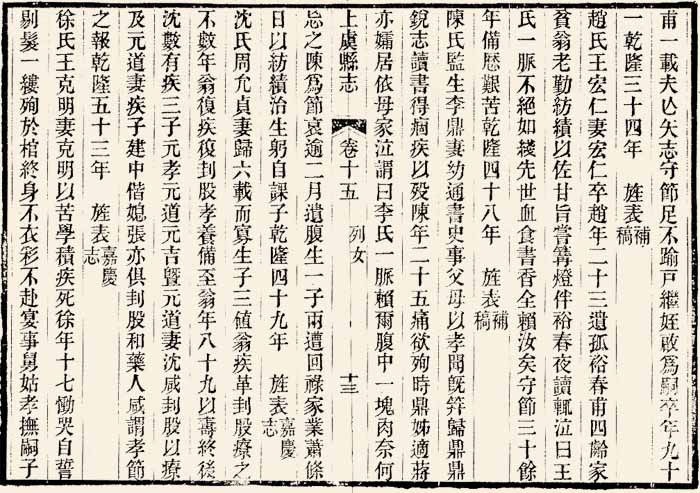 甫一載夫亾矢志守節足不踰戸繼姪敢爲嗣卒年九十
一乾隆三十四年　旌表補稿
趙氏王宏仁妻宏仁卒趙年二十三遺孤裕春甫四齡家
貧翁老勤紡績以佐甘旨嘗篝燈伴裕春夜讀輒泣曰王
氏一脈不絕如綫先世血食書香全賴汝矣守節三十餘
年備歴艱苦乾隆四十八年　旌表補稿
陳氏監生李鼎妻幼通書史事父母以孝聞旣筓歸鼎鼎
銳志讀書得痼疾以殁陳年二十五痛欲殉時鼎姊適蔣
亦孀居依母家泣謂曰李氏一脈賴爾腹中一塊肉奈何
上虞縣志　卷十五　列女　十三
忘之陳爲節哀逾二月遺腹生一子兩遭回祿家業蕭條
日以紡績治生躬自課子乾隆四十九年　旌表嘉慶志
沈氏周允貞妻歸六載而寡生子三値翁疾革刲股療之
不數年翁復疾復刲股孝養備至翁年八十九以壽終後
沈數有疾三子元孝元道元吉曁元道妻沈咸刲股以療
及元道妻疾子建中偕媳張亦俱刲股和藥人咸謂孝節
之報乾隆五十三年　旌表嘉慶志
徐氏王克明妻克明以苦學積疾死徐年十七慟哭自誓
剔髮一縷殉於棺終身不衣彩不赴宴事舅姑孝撫嗣子